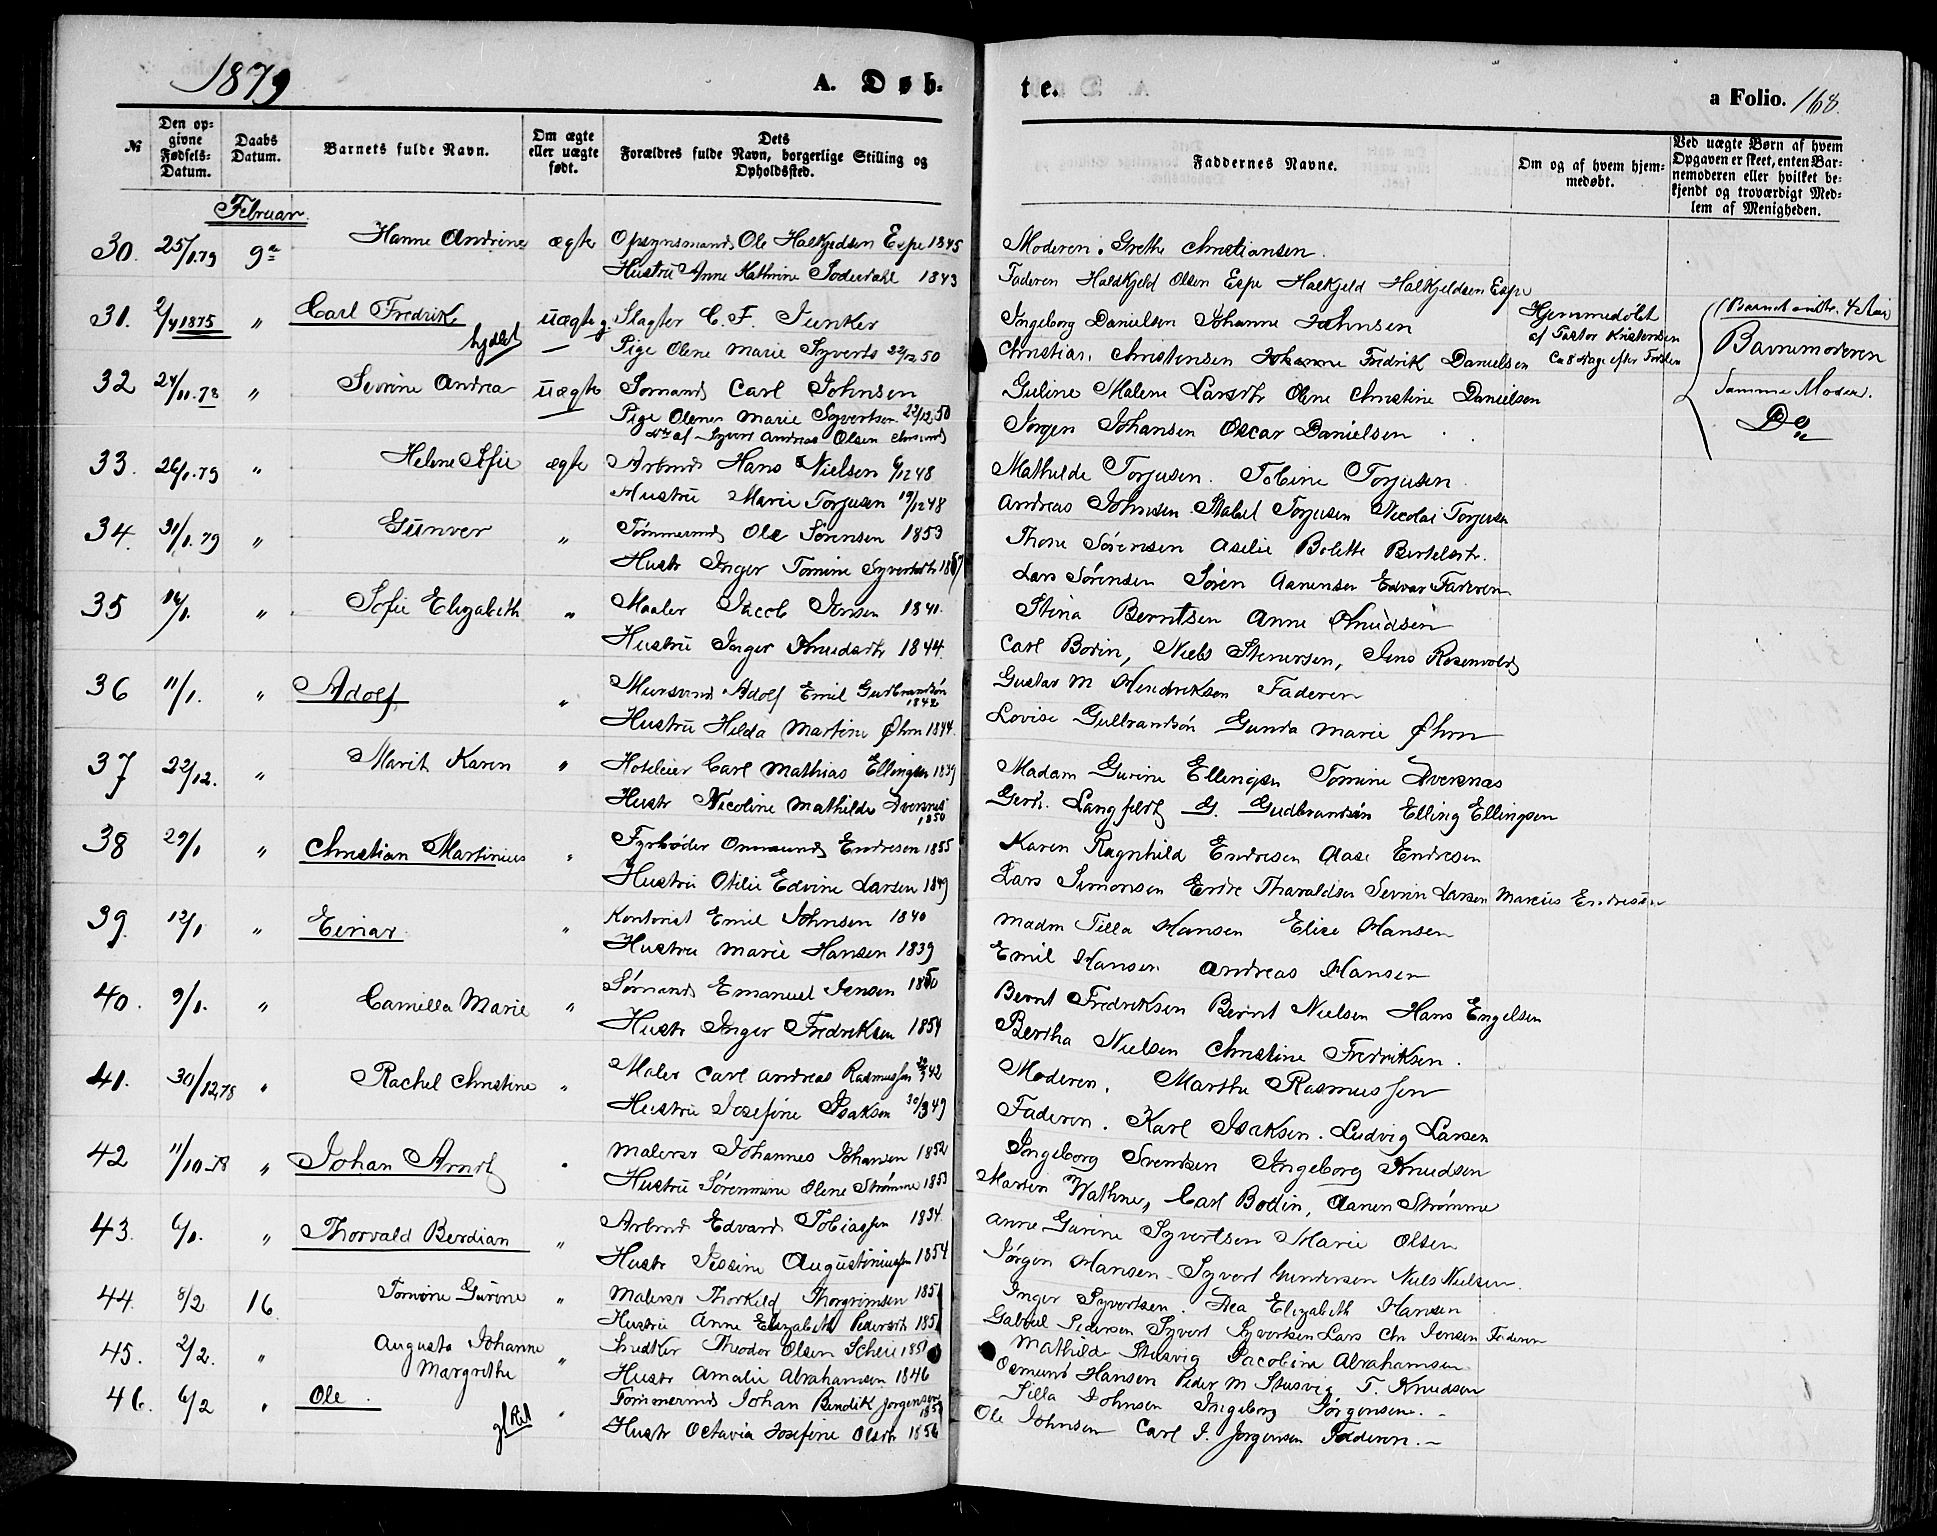 1879
A. Døb-
te.
a Folio. 168.
№
Den op-
givne
Fødsels-
Datum.
Daabs
Datum.
Barnets fulde Navn.
Om ægte
eller uægte
født.
Dets
Forældres fulde Navn, borgerlige Stilling og
Opholdssted.
Faddernes Navne.
Om og af hvem hjem-
medøbt.
Ved uægte Børn af hvem
Opgaven er skeet, enten Bar-
nemoderen eller hvilket be-
kjendt og troværdigt Med-
lem af Menigheden.
Februar.
30. 25/1.79 9de Hanne Andrine ægte Opsynsmand Ole Halkjeldsen Espe 1845 Moderen. Grethe Christiansen.
Hustru Anne Kathrine 1843 Faderen Haldkjeld Olsen Espe Halkjeld Halkjeldsen Espe
31. 2/4 1875 " Carl Fredrik uægte Slagter C. F. Junker Ingeborg Danielsen Johanne Johnsen Hjemmedøbt (Barnet omtr. 4 Aar
Pige Olene Marie Syverts 22/12 50 Christian Christensen Johanne Fredrik Danielsen af Pastor Kristensen Barnemoderen
Ca 8 Dage efter
32 24/11.78 " Sevrine Andrea uægte Sømand Carl Johnsen Guline Malene Larsdtr Olene Christine Danielsen Samme Moder.
Pige Olene Marie Syvertsen 22/12.50 Jørgen Johansen Oscar Danielsen Do
af Syvert Andreas Olsen
33. 26/1.79 " Helene Sofie ægte Arbmd Hans Nielsen 6/12 48 Mathilde Torjusen. Tobine Torjusen
Hustru Marie Torjusen 19/12 48 Andreas Johnsen Stabel Torjusen Nicolai Torjusen
34. 31/1.79 " Gunver " Tømmermd Ole Sørensen 1853 Thone Sørensen Aselie Bolette Bertelsdtr.
Hustr Inger Tomine Syvertsdtr 1857 Lars Sørensen Søren Aanensen Edvar Faderen
35 16/1. " Sofie Elizabeth " Maaler Jacob Jensen 1841. Stina Berntsen Anne Knudsen
Hustru Inger Knudsdtr 1844. Carl Bodin, Niels Stenersen, Jens Rosenvold
36 11/1. " Adolf " Adolf Emil Gudbrandsøn 1842 Gustav M Hendriksen Faderen
Hustru Hilda Martine Øhrn 1844. Lovise Gulbrandsøn Gunda Marie Øhrn
37 22/12. " Marit Karen " Hoteleier Carl Mathias Ellingsen 1839 Madam Gurine Ellingsen Tomine Aversnas
Hustr Nicoline Mathilde 1850 Gerh. Langfeldt G. Gudbrandsøn Elling Ellingsen
38 29/1 " Christian Martinius " Fyrbøder Onnmund Endresen 1855 Karen Ragnhild Endresen Aase Endresen
Hustru Otilie Edvine Larsen 1849 Lars Simonsen Endre Tharaldsen Severin Larsen Marcus Endresen
39. 12/1 " Einar " Kontorist Emil Johnsen 1840 Madm Tilla Hansen Elise Hansen
Hustru Marie Hansen 1839 Emil Hansen Andreas Hansen
40. 9/1. " Camilla Marie " Sømand Emanuel Jensen 1850 Bernt Fredriksen Bernt Nielsen Hans Engelsen
Hustr Inger Fredriksen 1854 Bertha Nielsen Christine Fredriksen.
41. 30/12.78 " Rachel Christine " Maler Carl Andreas Rasmussen 42 Moderen. Marthe Rasmussen
Hustru Josefine Isaksen 30/3 49 Faderen. Karl Isaksen. Ludvig Larsen
42 11/10 78 " Johan Arndt " Malersv Johannes Johansen 1852 Ingeborg Svendsen Ingeborg Knudsen
Hustru Sørenmine Olene Strømme 1853 Marten Wathne, Carl Bodin, Aanen Strømme
43. 6/1. " Thorvald Berdian " Arbmd Edvard Tobiassen 1834. Anne Gurine Syvertsen Marie Olsen
Hustr Jessine Augustiniussen 1854 Jørgen Hansen. Syvert Gundersen Niels Nielsen.
44. 8/2 16 Tomine Gurine " Malersv Thorkild Thorgrimsen 1851 Inger Syvertsen. Dea Elizabeth Hansen
Hustru Anne Elizabeth Pedersdtr 1851 Gabriel Pedersen Syvert Syvertsen Lars Chr Jensen Faderen
45. 2/2. " Augusta Johanne Margrethe " Snedker Theodor Olsen Scheie 1851 Mathilde Stusvig Jacobine Abrahamsen
Hustr Amalie Abrahamsen 1846 Osmund Hansen Peder M Stusvig T. Knudsen
46. 6/2 " Ole. " Tømmermd Johan Bendik Jørgensen Silla Johnsen Ingeborg Jørgensen.
Hustr Octavia Josefine Olsdtr 1856 Ole Johnsen Carl J. Jørgensen Fadderen.